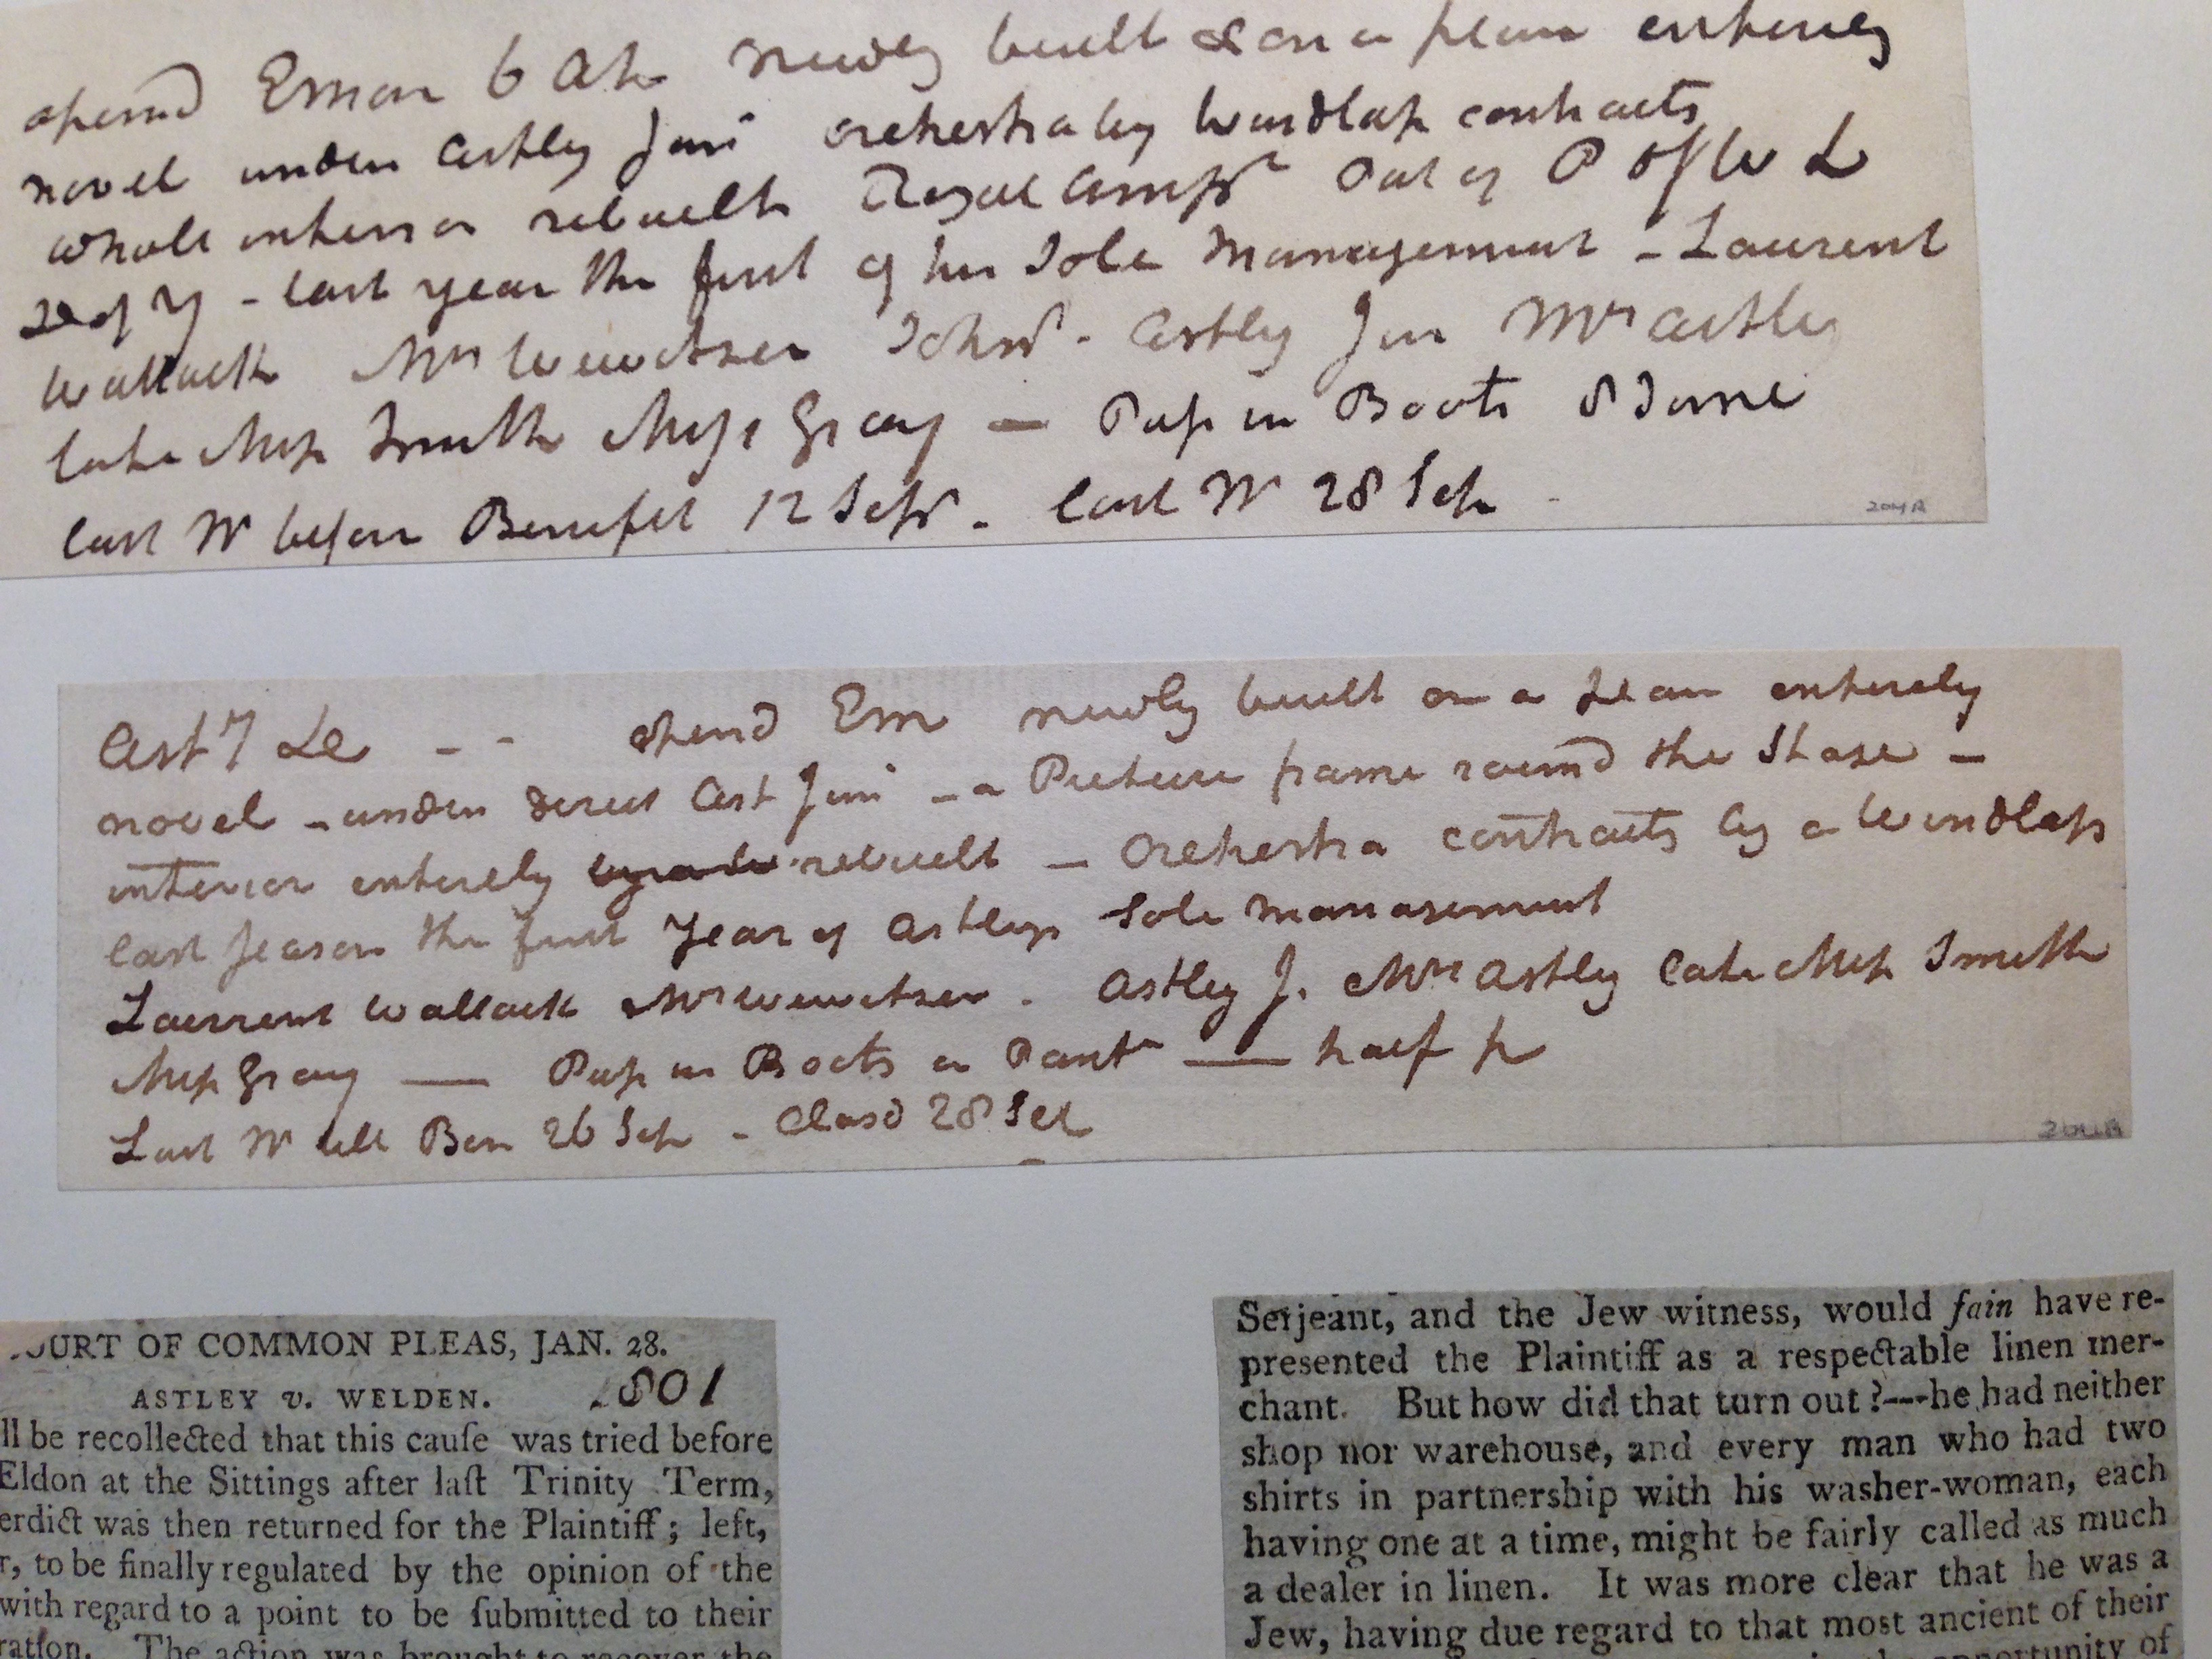 opend Emon 6 Ap newly built & on a plan entirely
novel under Astley Junr orchestra by windlass contracts
whole interior rebuilt Royal Amp Pat of P of W &
D of Y - last year the first of his Sole Management - Laurent
Wallack Mrs Wewitzer Johnn - Astley Jun Mrs Astley
late Miss Smith Miss Gray - Puss in Boots 8 June
last W before Benefit 12 Sepr - last W 28 Sep
204A
Ast 7 - - opend Em newly built on a plan entirely
novel - under direct Ast Junr - a Picture frame round the Stage -
interior entirely rebuilt - Orchestra contracts by a Windlass
last season the first Year of Astleys Sole management
Laurent Wallack Mrs Wewitzer . Astley J. Mrs Astley late Miss Smith
Miss Gray — Puss in Boots a Pant — half p
Last W till Ben 26 Sep - Closd 28 Sep
204A
OURT OF COMMON PLEAS, JAN. 28.
ASTLEY v. WELDEN. 1801
ll be recollected that this cauſe was tried before
Eldon at the Sittings after laſt Trinity Term,
erdict was then returned for the Plaintiff; left,
r, to be finally regulated by the opinion of the
with regard to a point to be ſubmitted to their
ration. The action was brought to recover the
Serjeant, and the Jew witness, would fain have re-
presented the Plaintiff as a respectable linen mer-
chant. But how did that turn out?---he had neither
shop nor warehouse, and every man who had two
shirts in partnership with his washer-woman, each
having one at a time, might be fairly called as much
a dealer in linen. It was more clear that he was a
Jew, having due regard to that most ancient of their
opportunity of